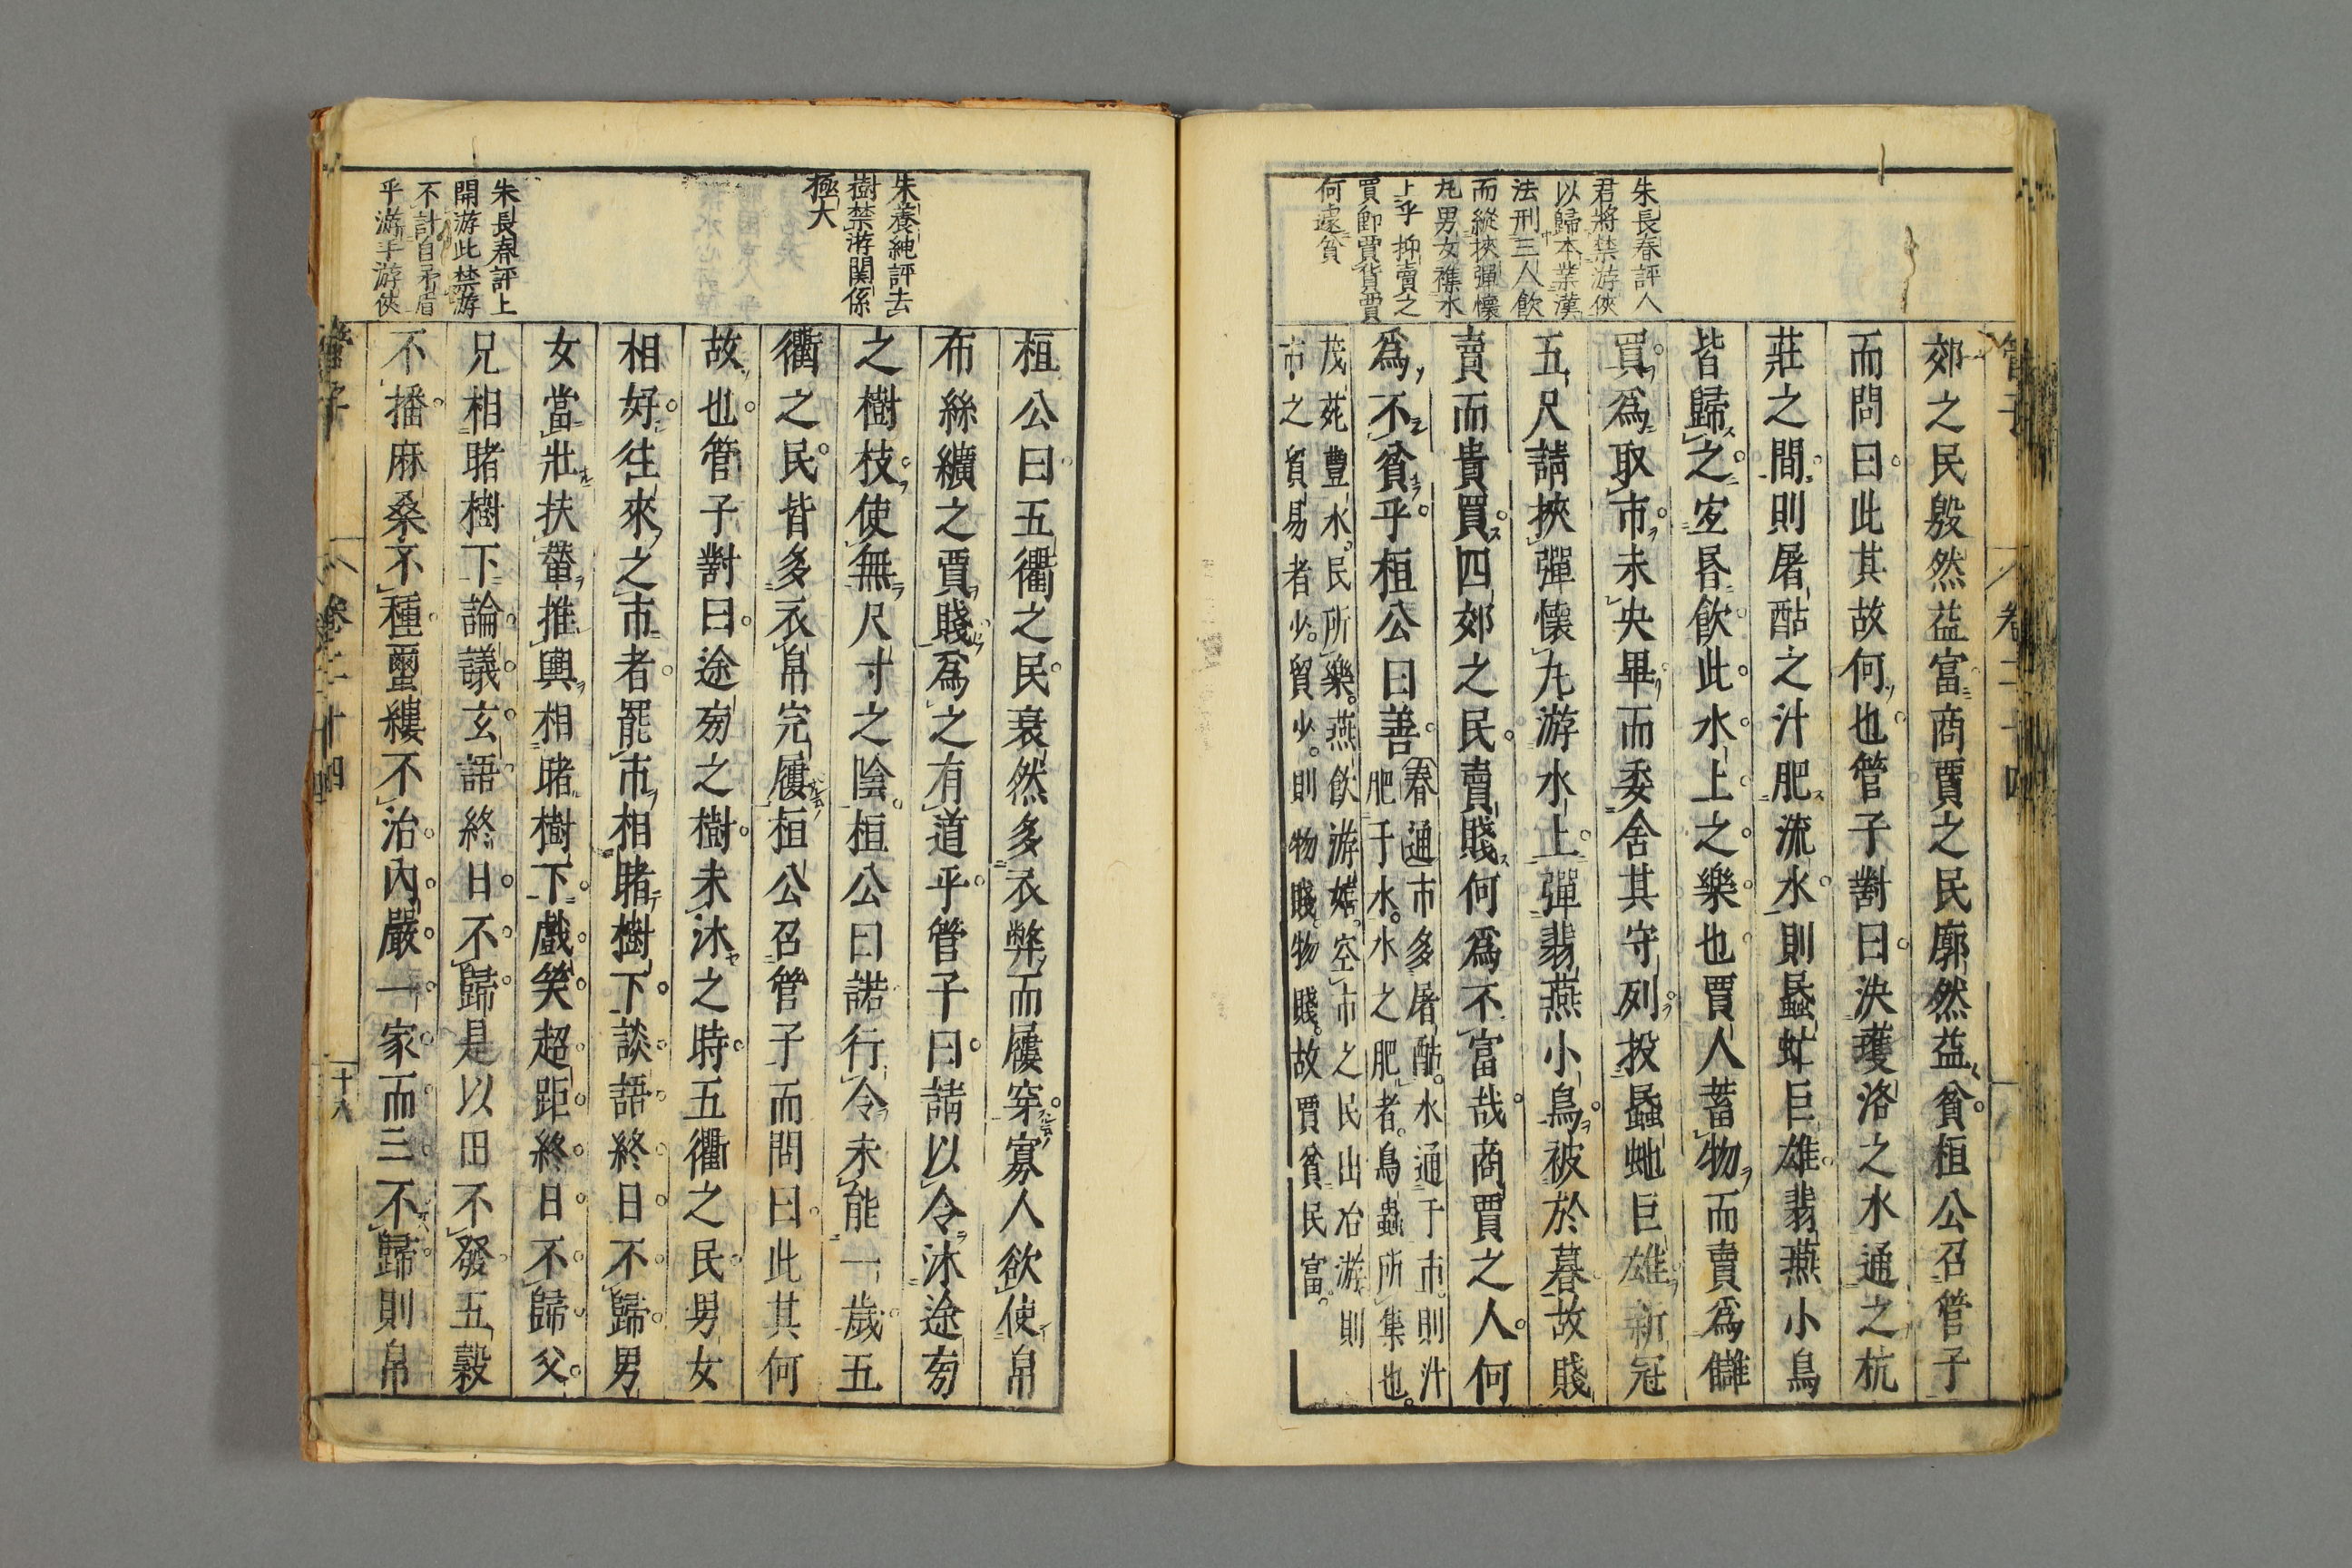 管子
卷二十四
朱長春評人
君將禁游俠
以歸本業漢
法刑三人飲
而縱挾彈懷
丸男女襍水
上乎抑賣之
買卽賈貨賈
何遽貧
郊之民殷然益富商賈之民廓然益貧桓公召管子
而問曰此其故何也管子對曰決瓁洛之水通之杭
莊之間則屠酤之汁肥流水則蟁虻巨雄翡燕小鳥
皆歸之宐昏飲此水上之樂也賈人蓄物而賣爲讎
買爲取市未央畢而委舍其守列投蟁虵巨雄新冠
五尺請挾彈懷丸游水上彈翡燕小鳥被於暮故賤
賣而貴買四郊之民賣賤何爲不富哉商賈之人何
爲不貧乎桓公曰善
春通市多屠酤水通于市則汁
肥于水水之肥者鳥蟲所集也
茂苑豐水民所樂燕飲游嬉空市之民出冶游則
市之貿易者少貿少則物賤物賤故賈貧民富
朱養純評去
樹禁游関係
極大
朱長春評上
開游此禁游
不計自矛盾
乎游手游俠
桓公曰五衢之民衰然多衣弊而屨穿寡人欲使帛
布絲纊之賈賤爲之有道乎管子曰請以令沐途旁
之樹枝使無尺寸之陰桓公曰諾行令未能一歲五
衢之民皆多衣帛完屨桓公召管子而問曰此其何
故也管子對曰途旁之樹未沐之時五衢之民男女
相好往來之市者罷市相睹樹下談語終日不歸男
女當壯扶輦推輿相睹樹下戲笑超距終日不歸父
兄相睹樹下論議玄語終日不歸是以田不發五穀
不播麻桑不種䘋縷不治內嚴一家而三不歸則帛
管子
卷二十四
十八